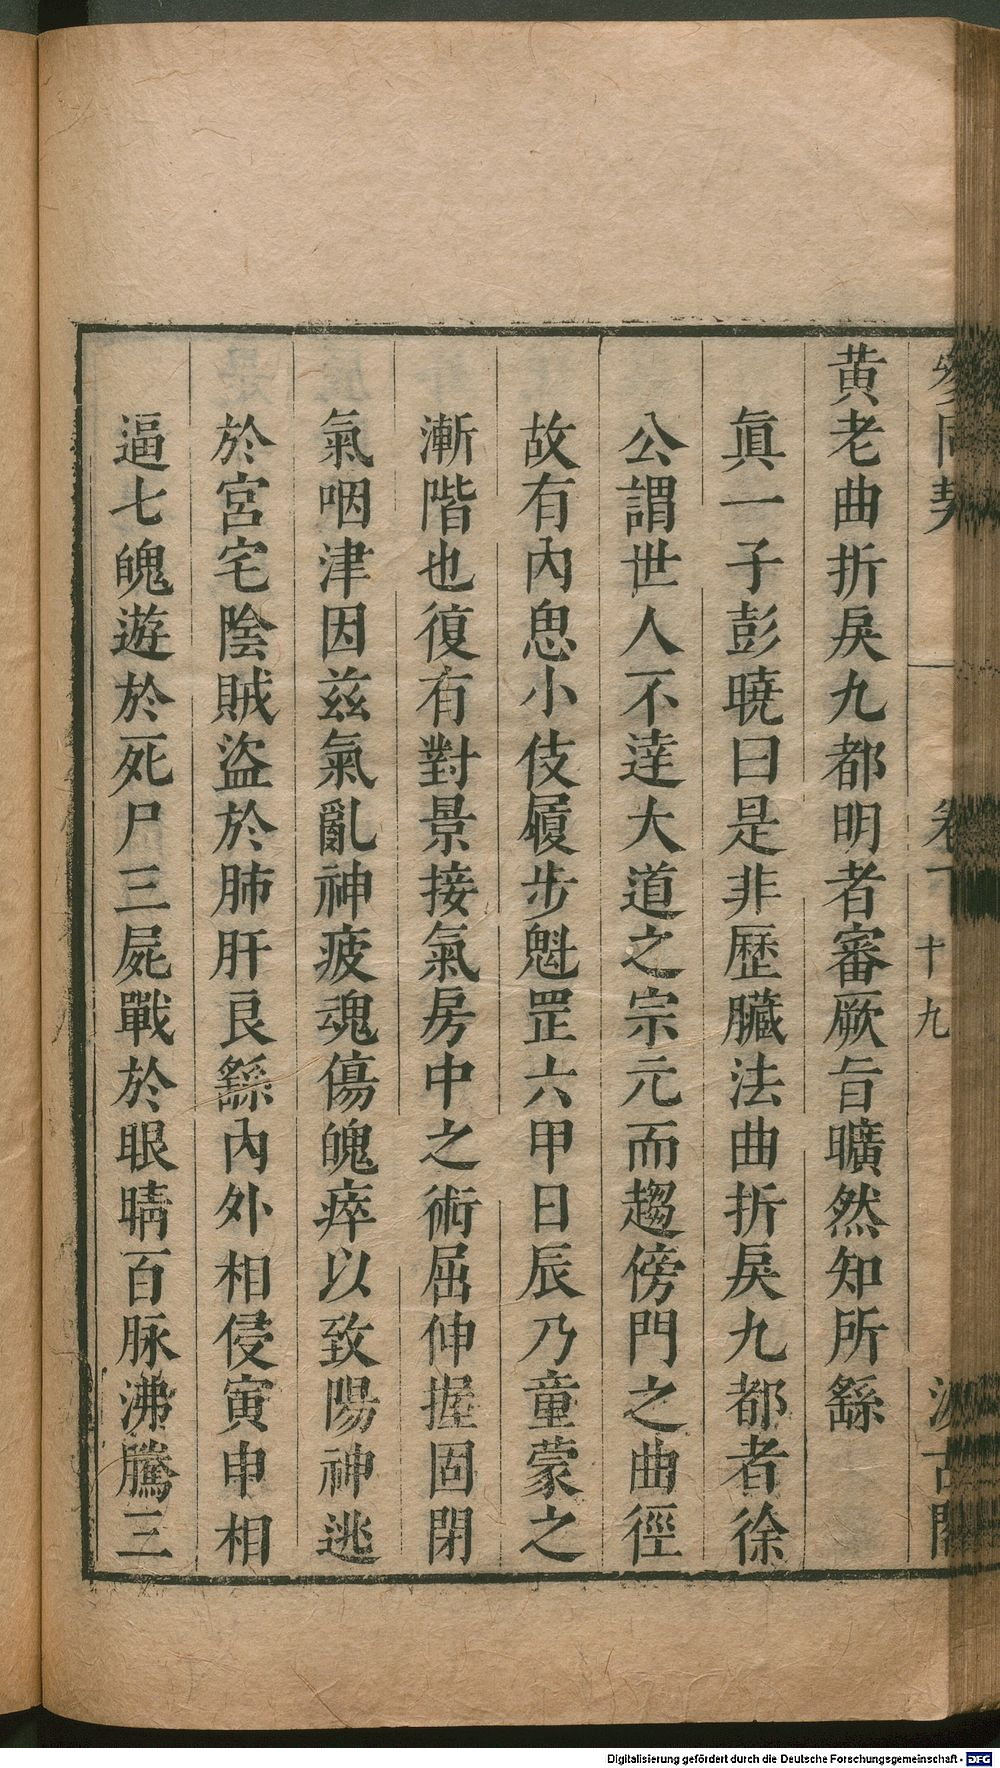 參同契 卷下 十九 汲古閣
黃老曲折戾九都明者審厥旨曠然知所繇
眞一子彭曉曰是非歷臟法曲折戾九都者徐
公謂世人不達大道之宗元而趨傍門之曲徑
故有內思小伎履步魁罡六甲日辰乃童蒙之
漸階也復有對景接氣房中之術屈伸握固閉
氣咽津因兹氣亂神疲魂傷魄瘁以致陽神逃
於宮宅陰賊盜於肺肝良繇內外相侵寅申相
逼七魄遊於死尸三屍戰於眼睛百脉沸騰三
Digitalisierung gefördert durch die Deutsche Forschungsgemeinschaft - DFG